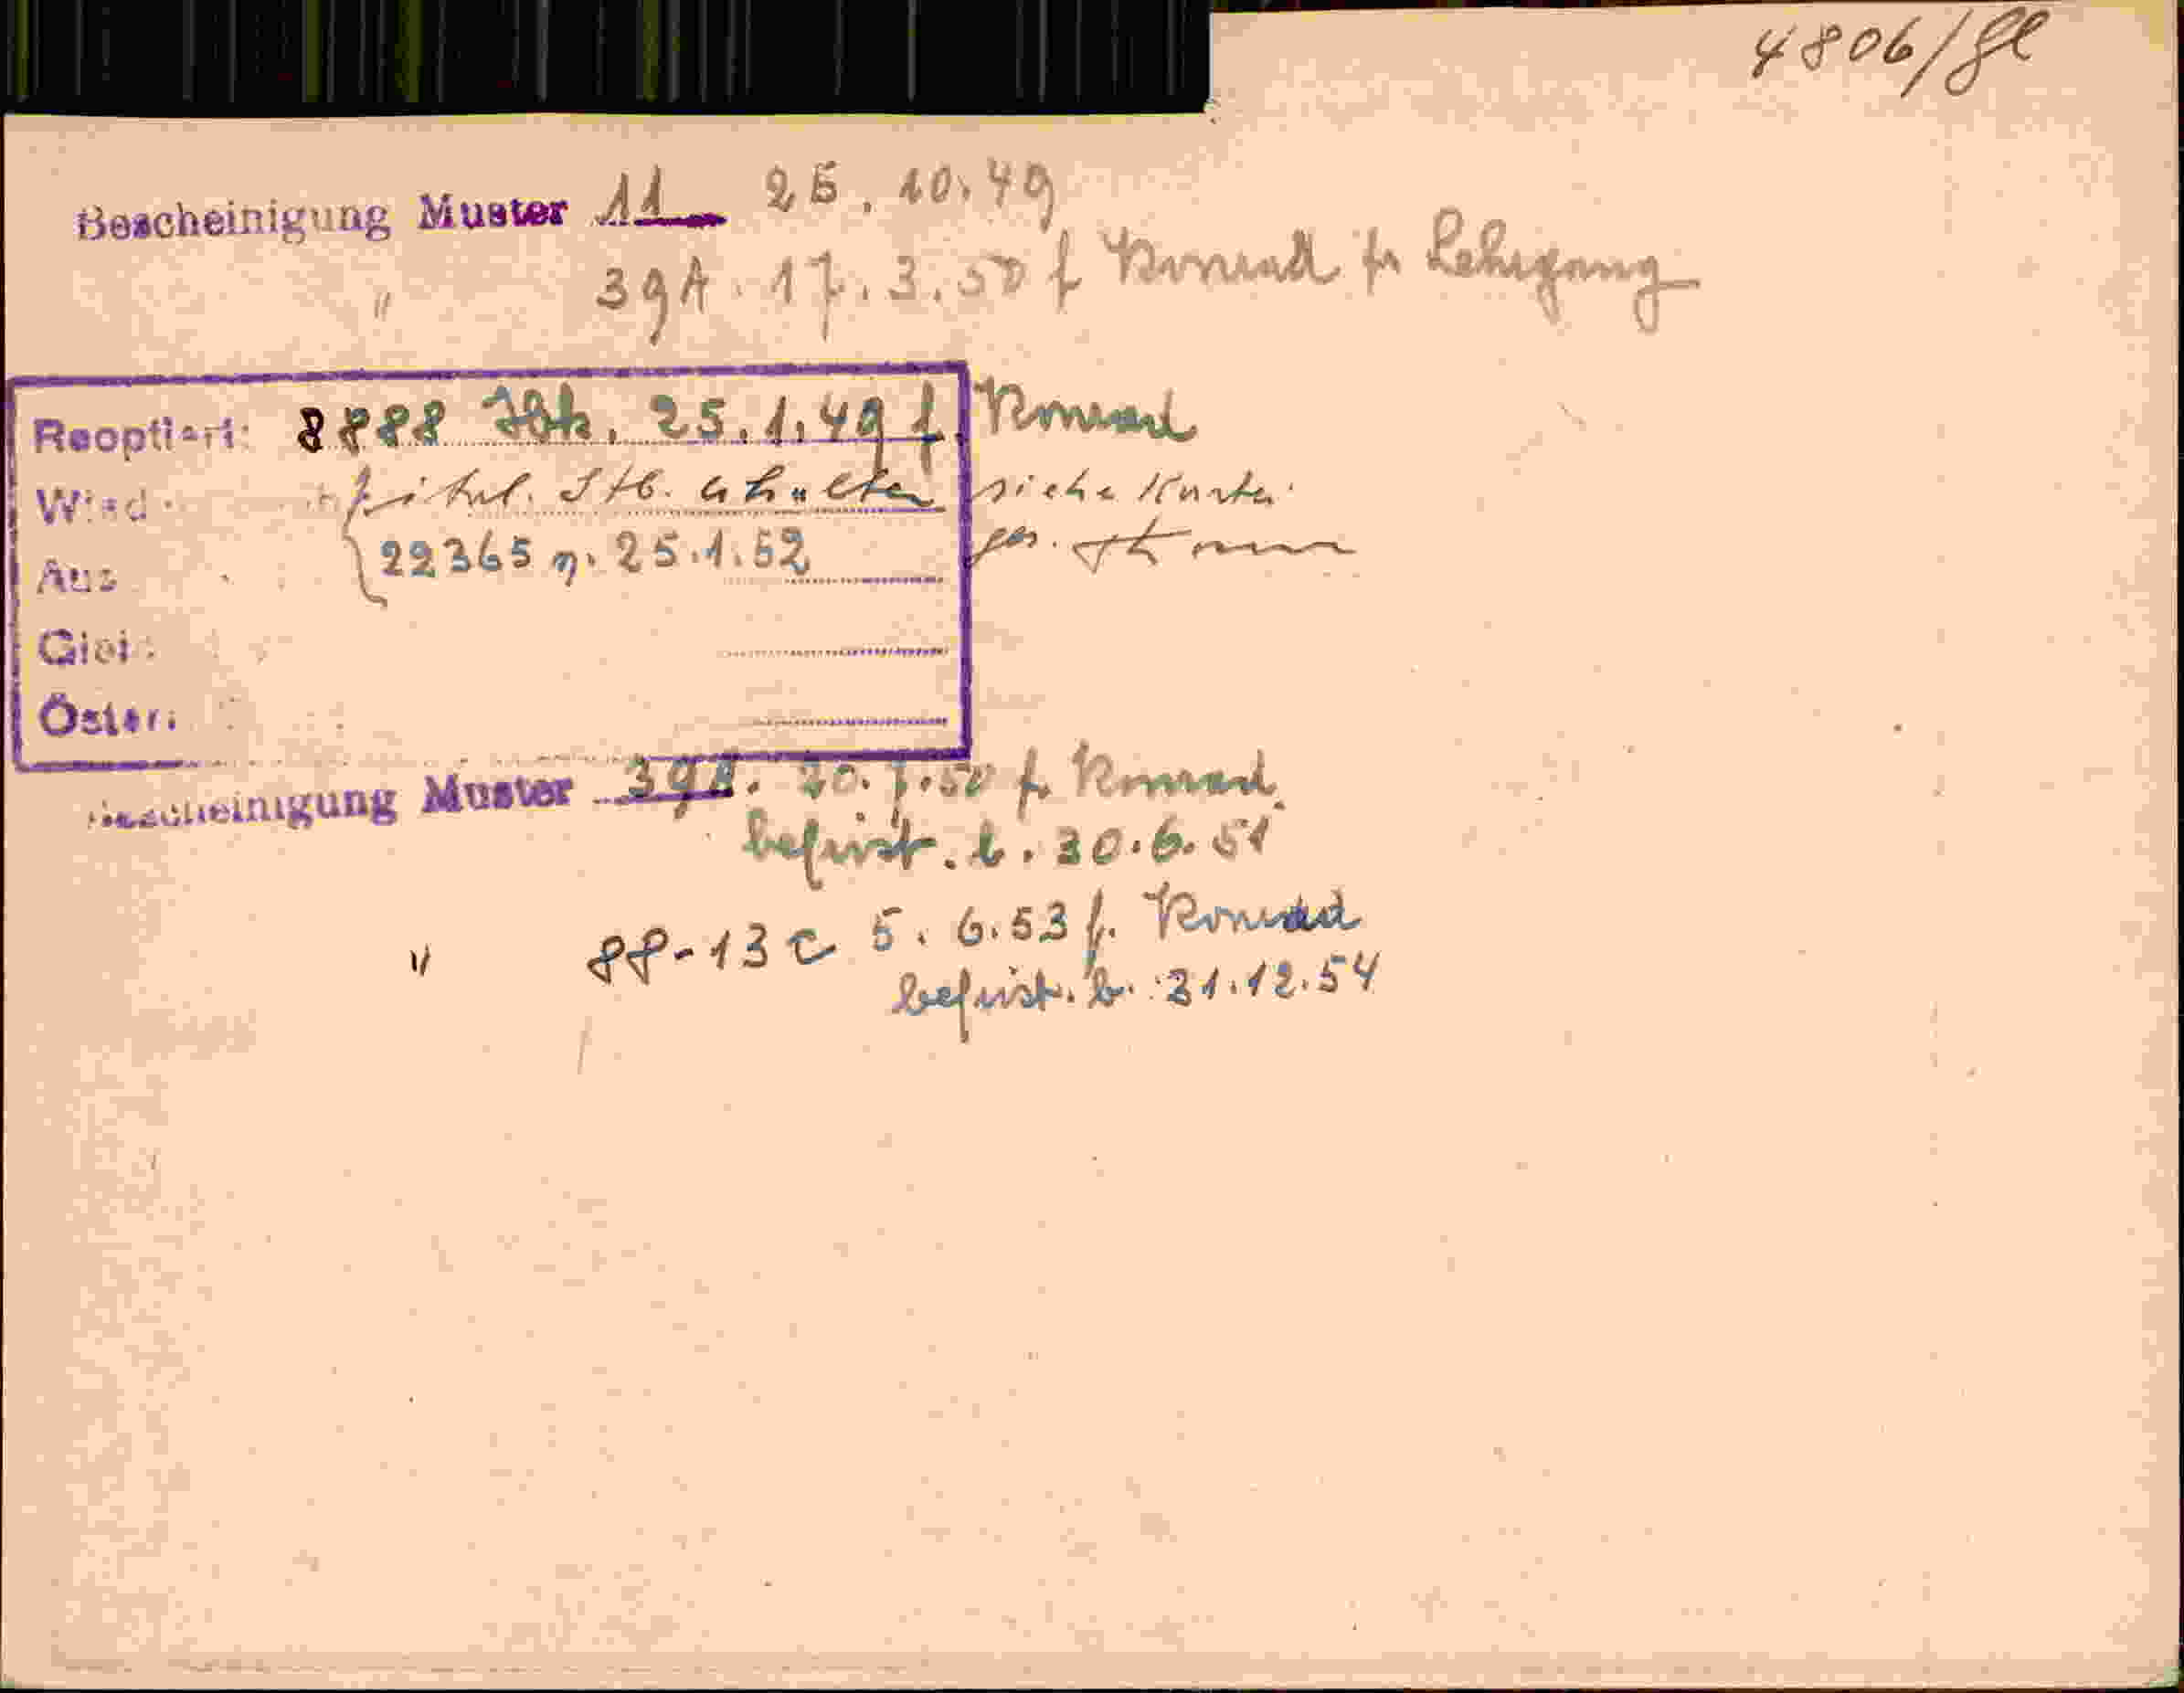 4806/
Bescheinigung Muster 11 25.10.49
" 39A. 17.3.50 f Konrad f. Lehrgang
Reoptiert: 8888 Ibk. 25.1.49 f. Konrad
Wied ital. Stb. erhalten siehe Kartei
Aus 22365 25.1.52
Giei:
Österr.
Bescheinigung Muster 39A. 20.7.50 f. Konrad
befrist. b. 30.6.51
" 88-13c 5.6.53 f. Konrad
befrist. b. 31.12.54